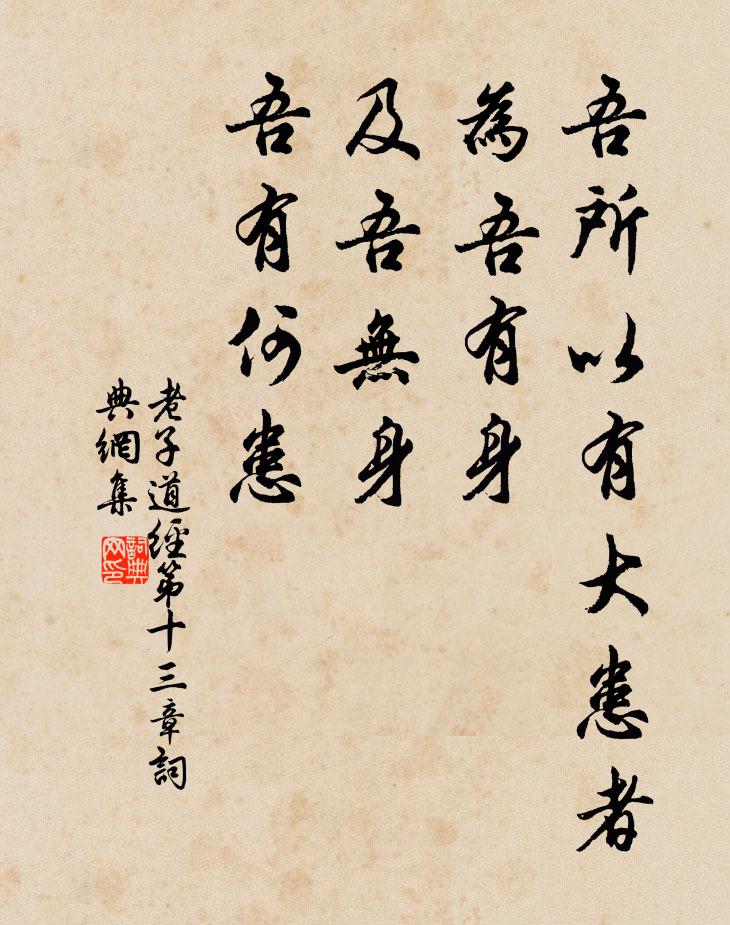 吾所以有大患者
為吾有身
及吾無身
吾有何患
老子道經第十三章詞
典網集
詞典
网印